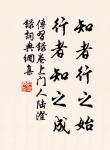 知者行之始
行者知之成
傳習錄卷上門人陸澄
錄詞典網集